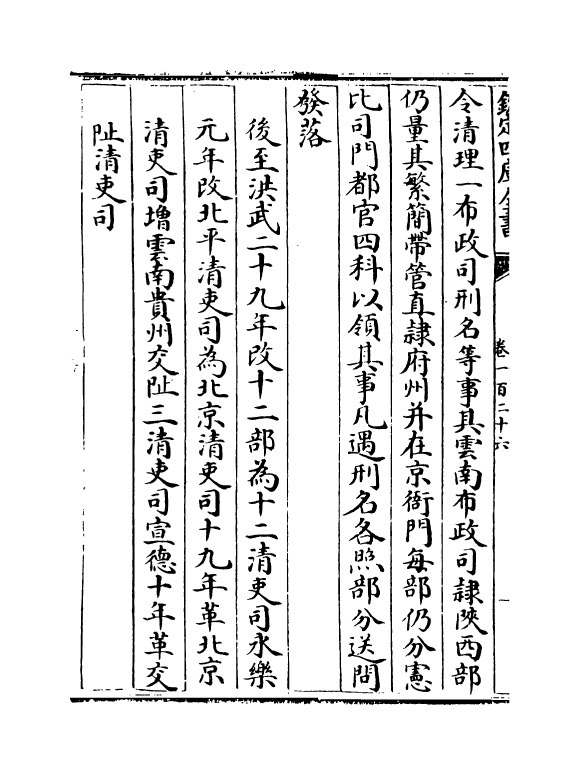 欽定四庫全書
卷一百二十六
令清理一布政司刑名等事其雲南布政司隸陝西部
仍量其繁簡帶管直隸府州并在京衙門每部仍分憲
比司門都官四科以領其事凡遇刑名各照部分送問
發落
後至洪武二十九年改十二部為十二清吏司永樂
元年改北平清吏司為北京清吏司十九年革北京
清吏司增雲南貴州交阯三清吏司宣德十年革交
阯清吏司